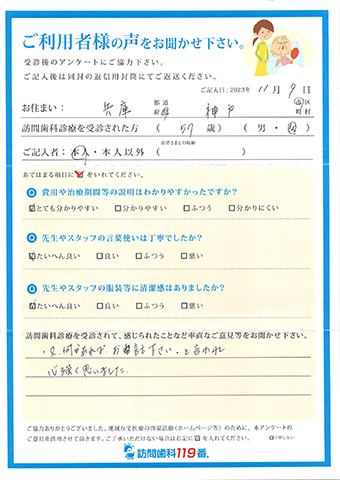 ご利用者様の声をお聞かせ下さい。
受診後のアンケートにご協力下さい。
ご記入後は同封の返信用封筒にてご返送ください。
ご記入日:2023年 11月 9日
お住まい: 兵庫 都道府県 神戸 市区町村
訪問歯科診療を受診された方 ( 57 歳) (男・女)
ご記入者:本人・本人以外 ( )
あてはまる項目に☑をいれてください。
Q 費用や治療期間等の説明はわかりやすかったですか?
☑とても分かりやすい □分かりやすい □ふつう □分かりにくい
Q 先生やスタッフの言葉使いは丁寧でしたか?
☑たいへん良い □良い □ふつう □悪い
Q 先生やスタッフの服装等に清潔感はありましたか?
☑たいへん良い □良い □ふつう □悪い
訪問歯科診療を受診されて、感じられたことなど率直なご意見等をお聞かせ下さい。
・又、何かあれば、お電話下さい。と言われ
心強く思いました。
ご協力ありがとうございました。地域在宅医療の啓蒙活動(ホームページ等)のために、本アンケートの
ご意見を活用させて頂きます。ご了承いただけない場合は右記に☑を入れてください。 □了承しない
訪問歯科119番®